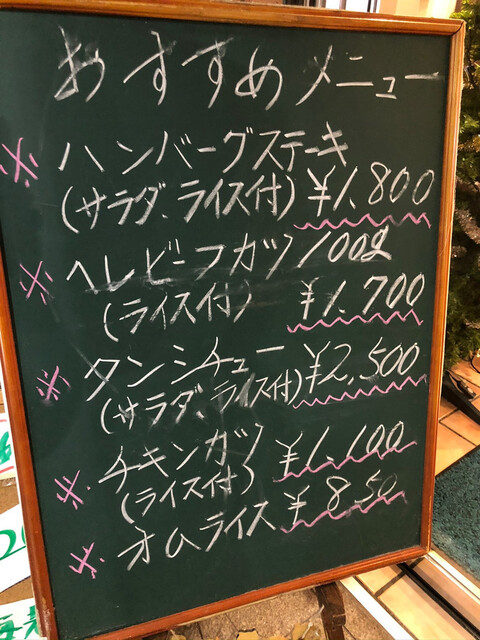 おすすめメニュー
※ ハンバーグステーキ
(サラダ、ライス付) ¥1.800
※ ヘレビーフカツ 100g
(ライス付) ¥1.700
※ タンシチュー ¥2,500
(サラダ、ライス付)
※ チキンカツ ¥1,100
(ライス付)
※ オムライス ¥850